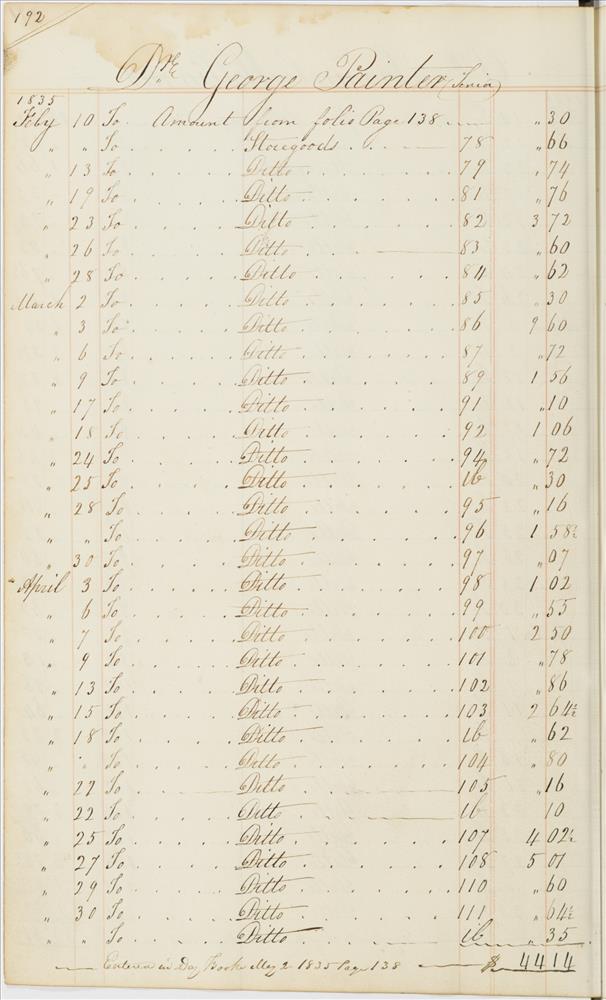 192
Dr. George Painter (Senior)
1835
Feby 10 To Amount from folio Page 138 " 30
" " To Storegoods 78 " 66
" 13 To Ditto 79 " 74
" 19 To Ditto 81 " 76
" 23 To Ditto 82 3 72
" 26 To Ditto 83 " 60
" 28 To Ditto 84 " 62
March 2 To Ditto 85 " 30
" 3 To Ditto 86 9 60
" 6 To Ditto 87 " 72
" 9 To Ditto 89 1 56
" 17 To Ditto 91 " 10
" 18 To Ditto 92 1 06
" 24 To Ditto 94 " 72
" 25 To Ditto ib " 30
" 28 To Ditto 95 " 16
" " To Ditto 96 1 58½
" 30 To Ditto 97 " 07
April 3 To Ditto 98 1 02
" 6 To Ditto 99 " 55
" 7 To Ditto 100 2 50
" 9 To Ditto 101 " 78
" 13 To Ditto 102 " 86
" 15 To Ditto 103 2 64½
" 18 To Ditto ib " 62
" " To Ditto 104 " 80
" To Ditto 105 " 16
" 22 To Ditto ib 10
" 25 To Ditto 107 4 02½
" 27 To Ditto 108 5 01
" 29 To Ditto 110 " 60
" 30 To Ditto 111 " 64½
" " To Ditto ib " 35
Entered in Day Book May 2 1835 Page 138 $ 44 14